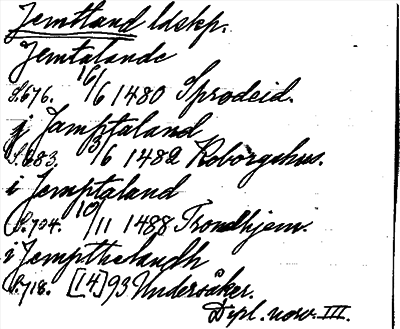 Jemtland ldskp.
Jemtalande
S.676. 16/6 1480 Sprodeid.
j Jamptaland
S.683. 3/6 1482 Koborgshus.
i Jemptaland
S.704. 10/11 1488 Trondhjem.
i Jempthelandh
S.718. [14]93 Undersåker.
Dipl. norv. III.